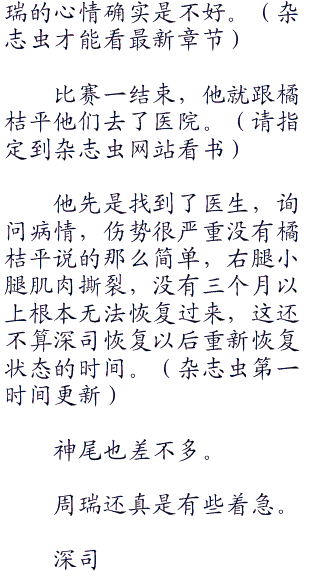 瑞的心情确实是不好。（杂
志虫才能看最新章节）
比赛一结束，他就跟橘
桔平他们去了医院。（请指
定到杂志虫网站看书）
他先是找到了医生，询
问病情，伤势很严重没有橘
桔平说的那么简单，右腿小
腿肌肉撕裂，没有三个月以
上根本无法恢复过来，这还
不算深司恢复以后重新恢复
状态的时间。（杂志虫第一
时间更新）
神尾也差不多。
周瑞还真是有些着急。
深司